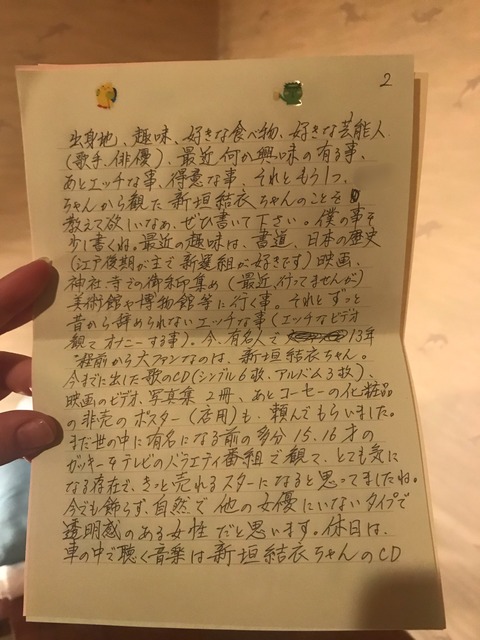 2
出身地、趣味、好きな食べ物、好きな芸能人
(歌手、俳優)、最近何か興味の有る事、
あとエッチな事、得意な事、それともう1つ、
ちゃんから観た新垣結衣ちゃんのことを
教えて欲しいなぁ、ぜひ書いて下さい。僕の事を
少し書くね。最近の趣味は、書道、日本の歴史
(江戸後期が主で新選組が好きです)映画、
神社、寺での御朱印集め(最近、行ってませんが)
美術館や博物館等に行く事。それとずっと
昔から辞められないエッチな事(エッチなビデオ
観てオナニーする事)。今、有名人で 13年
程前から大ファンなのは、新垣結衣ちゃん。
今までに出した歌のCD(シングル6枚、アルバム3枚)、
映画のビデオ、写真集2冊、あとコーセーの化粧品
の非売のポスター(店用)も、頼んでもらいました。
まだ世の中に有名になる前の多分15.16才の
ガッキーをテレビのバラエティ番組で観て、とても気に
なる存在で、きっと売れるスターになると思ってましたね。
今でも飾らず、自然で他の女優にいないタイプで
透明感のある女性だと思います。休日は、
車の中で聴く音楽は新垣結衣ちゃんのCD